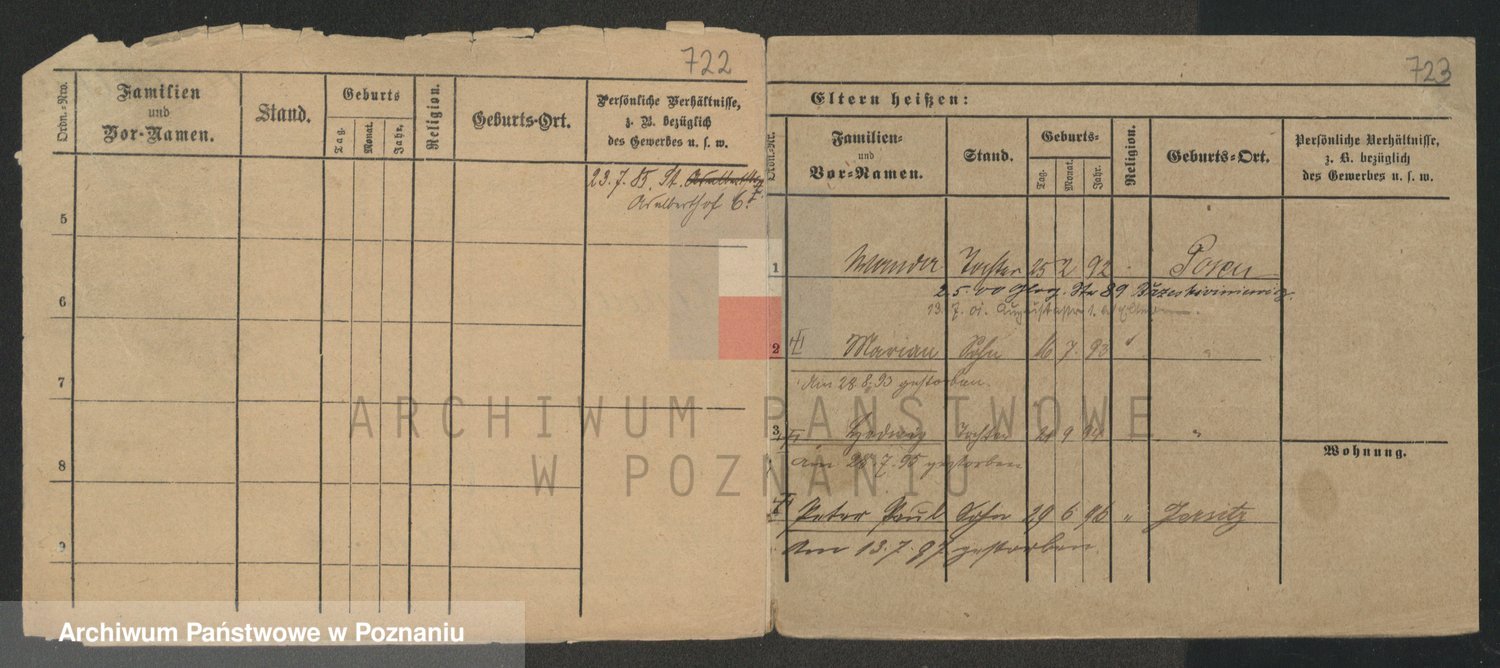 722
Ordn.-Nro.
Familien
und
Vor-Namen.
Stand.
Geburts
Tag.
Monat.
Jahr.
Religion.
Geburts-Ort.
Persönliche Verhältnisse,
z. B. bezüglich
des Gewerbes u. s. w.
23. 7. 85. St.
Adalberthof 6 I.
5
6
7
8
9
723
Eltern heißen:
Ordn.-Nr.
Familien-
und
Vor-Namen.
Stand.
Geburts-
Tag.
Monat.
Jahr.
Religion.
Geburts-Ort.
Persönliche Verhältnisse,
z. B. bezüglich
des Gewerbes u. s. w.
1 Wanda Tochter 25 2 92 Posen
2. 5. 00 Glog. Str 89
13. 7. 01. Augustastr 1. b. Eltern
2 Marian Sohn 16 7. 93 "
Am 28 8. 93 gestorben.
3 Hedwig Tochter 21 9 94 "
Am 28. 7. 95 gestorben
Wohnung.
Peter Paul Sohn 29 6 96 " Jersitz
Am 13. 7. 97 gestorben.
ARCHIWUM PAŃSTWOWE
W POZNANIU
Archiwum Państwowe w Poznaniu